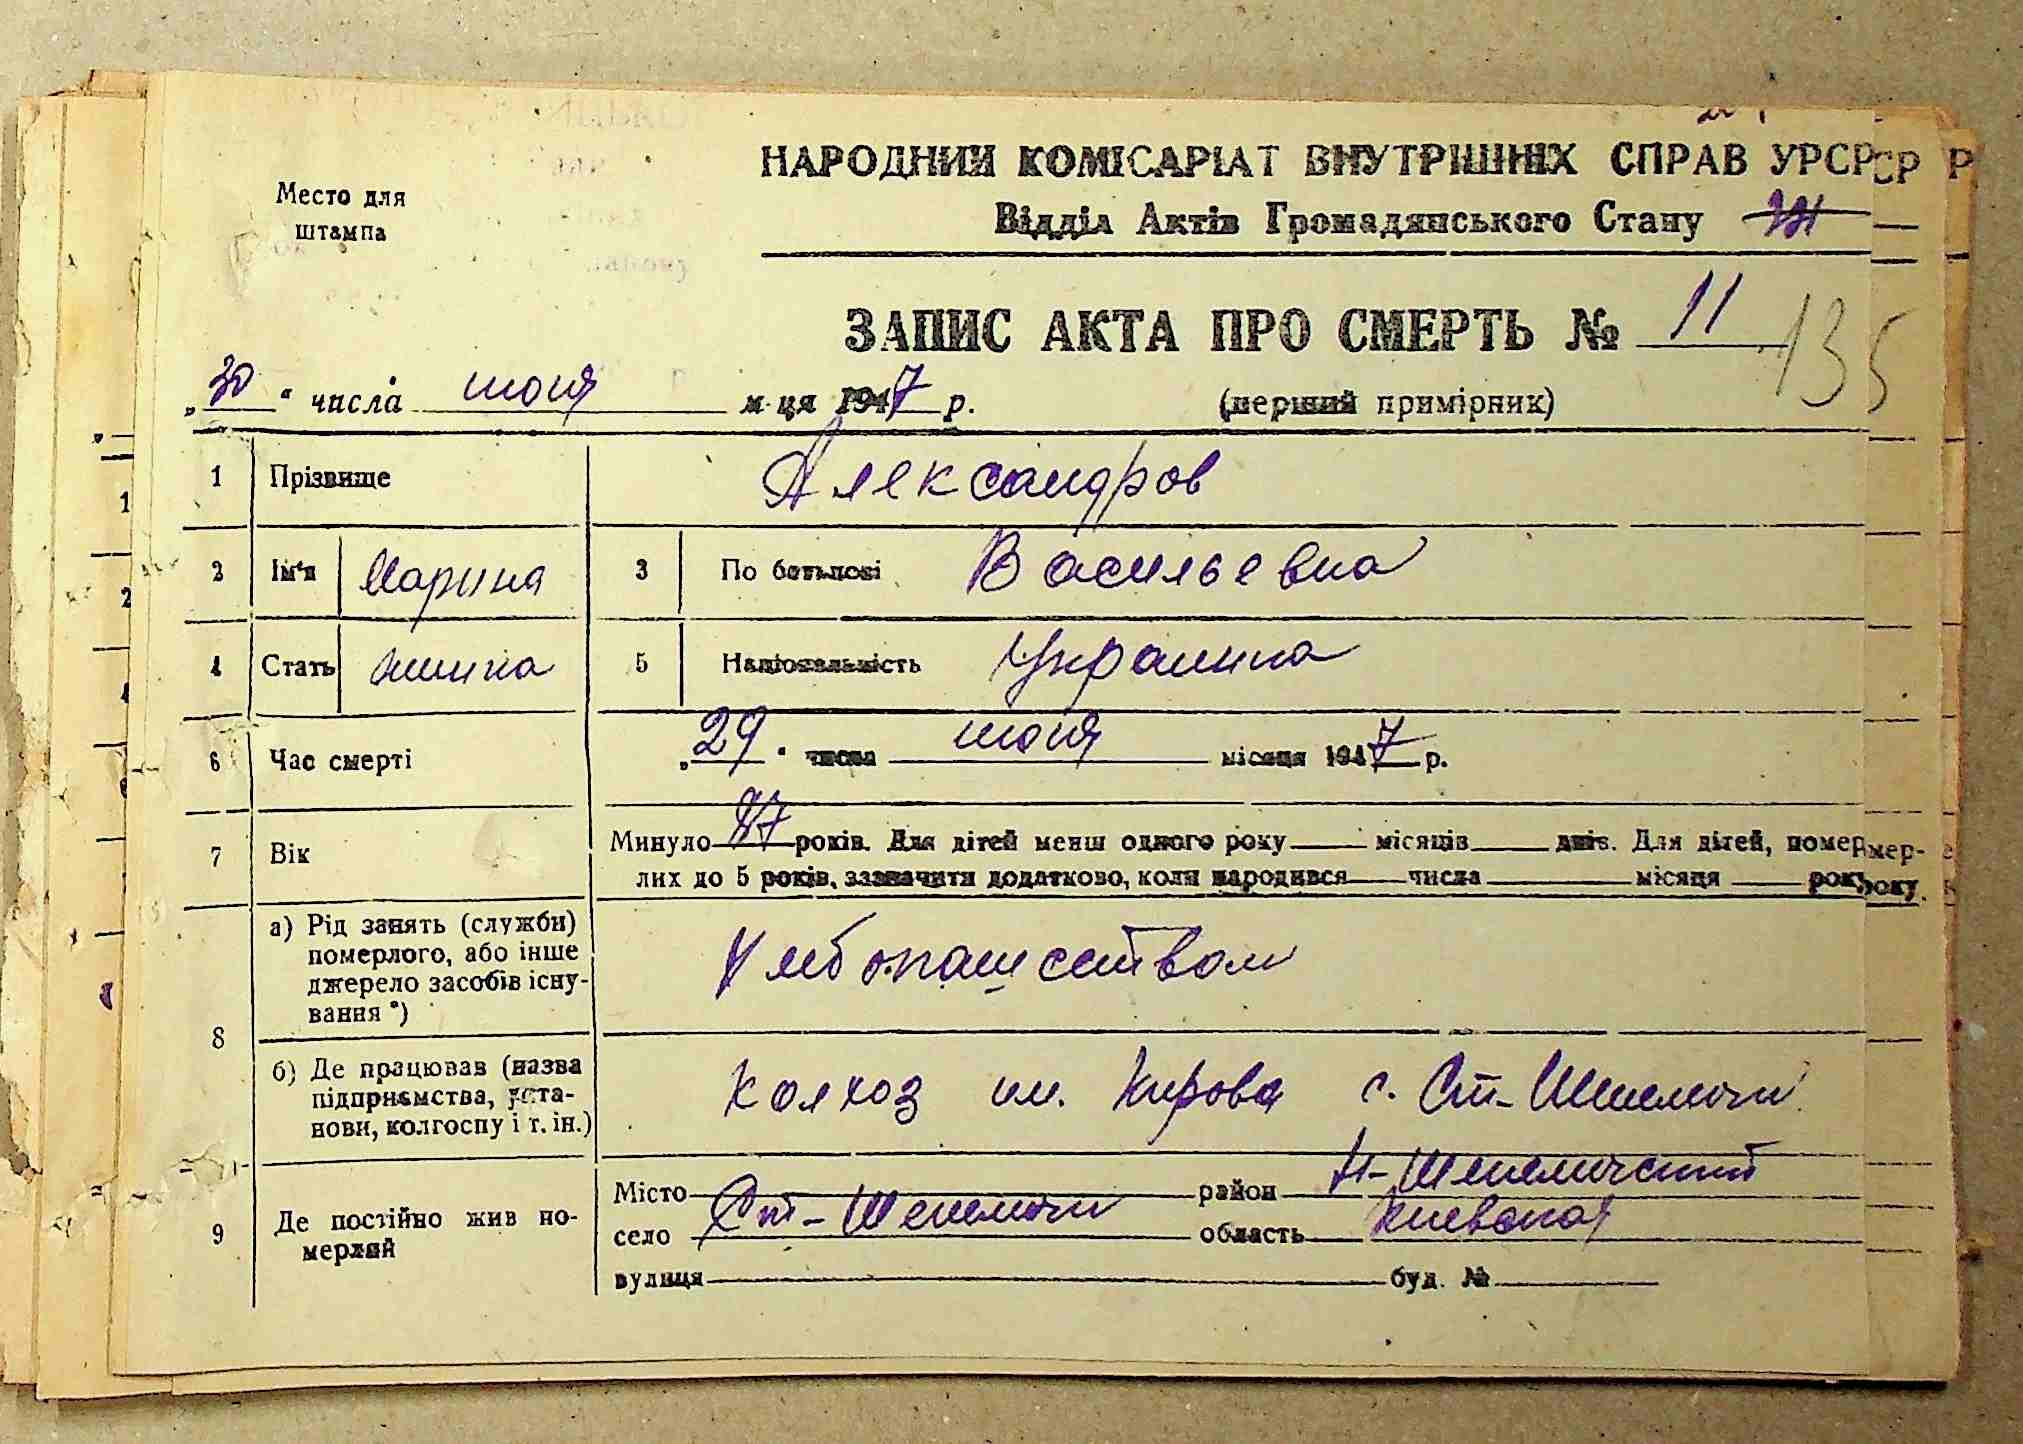 Место для
штампа
НАРОДНИЙ КОМІСАРІАТ ВНУТРІШНІХ СПРАВ УРСР
Відділ Актів Громадянського Стану
ЗАПИС АКТА ПРО СМЕРТЬ № 11
135
„30“ числа июня м-ця 1947 р. (перший примірник)
1 Прізвище Александров
2 Ім'я Марина 3 По батькові Васильевна
4 Стать 5 Національність Украинка
6 Час смерті „29“ числа июня місяця 1947 р.
7 Вік Минуло років. Для дітей менш одного року місяців днів. Для дітей, помер-
лих до 5 років, зазначити додатково, коли народився числа місяця року
8 а) Рід занять (служби) померлого, або інше джерело засобів існу-вання*) Хлебопашеством
б) Де працював (назва підприємства, уста-нови, колгоспу і т. ін.) Колхоз им. Кирова с. Ст-Шепеличи
9 Де постійно жив по-мерлий
Місто район Н-Шепеличский
село Ст-Шепеличи область Киевская
вулиця буд. №